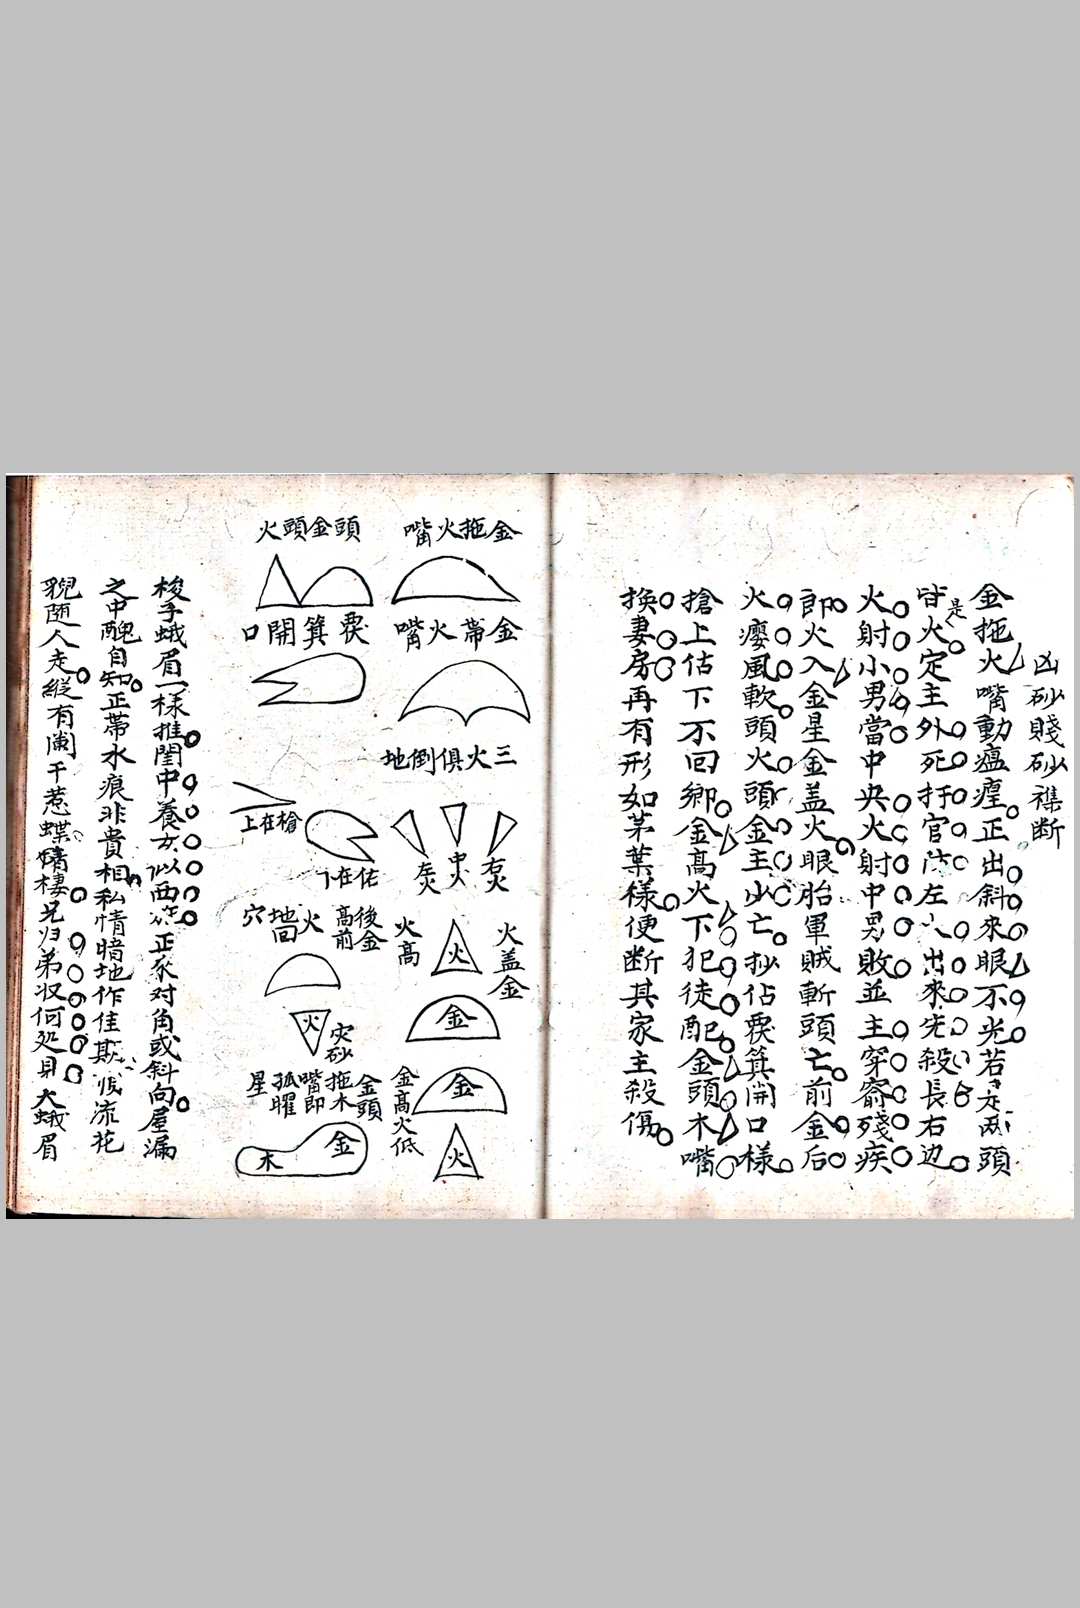 凶砂賤砂襍断
金拖火嘴動瘟瘟正出斜來眼不光若是兩頭
皆是火定主外死打官左出來先殺長右边
火射小男當中央火射中男敗並主穿窬殘疾
郎火入金星金盖火眼胎軍賊斬頭亡前金后
火瘿風軟頭火頭金主少亡抄估裠箕開口樣
搶上估下不回鄉金高火下犯徒配金頭木嘴
換妻房再有形如茅葉樣便断其家主殺傷
金拖火嘴
頭金頭火
金帶火嘴
裠箕開口
三火俱倒地
右火
中火
左火
槍在上
估在下
火盖金
火高
火
金
後金高前火地回穴
火
灾砂
金高火低
金
火
金頭拖木嘴即孤曜星
金
木
梭手蛾眉一樣推閨中養女似西正𧰨对角或斜向屋漏
之中醜自知正帶水痕非貴相私情暗地作佳欺流花
貎隨人走縱有闌干惹蝶情棲兄归弟収何処見大蛾眉